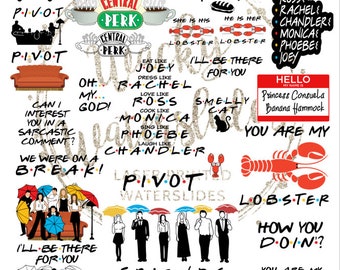 P·I·V·O·T
CENTRAL
PERK
CENTRAL
PERK
SHE IS HIS
LOBSTER
HE IS HER
LOBSTER
ROSS!
RACHEL!
CHANDLER!
MONICA!
PHOEBE!
JOEY
P·I·V·O·T
OH.
MY.
GOD!
EAT LIKE
JOEY
DRESS LIKE
RACHEL
LOVE LIKE
ROSS
COOK LIKE
MONICA
SING LIKE
PHOEBE
LAUGH LIKE
CHANDLER
I'LL BE THERE
FOR YOU
SMELLY
CAT
HELLO
MY NAME IS
Princess Consuela
Banana Hammock
CAN I
INTEREST
YOU IN A
SARCASTIC
COMMENT?
WE WERE ON A
B·R·E·A·K!
YOU ARE MY
LOBSTER
P·I·V·O·T
WATERSLIDES
I'LL BE THERE
FOR YOU
HOW YOU
DOIN'?
YOU ARE MY